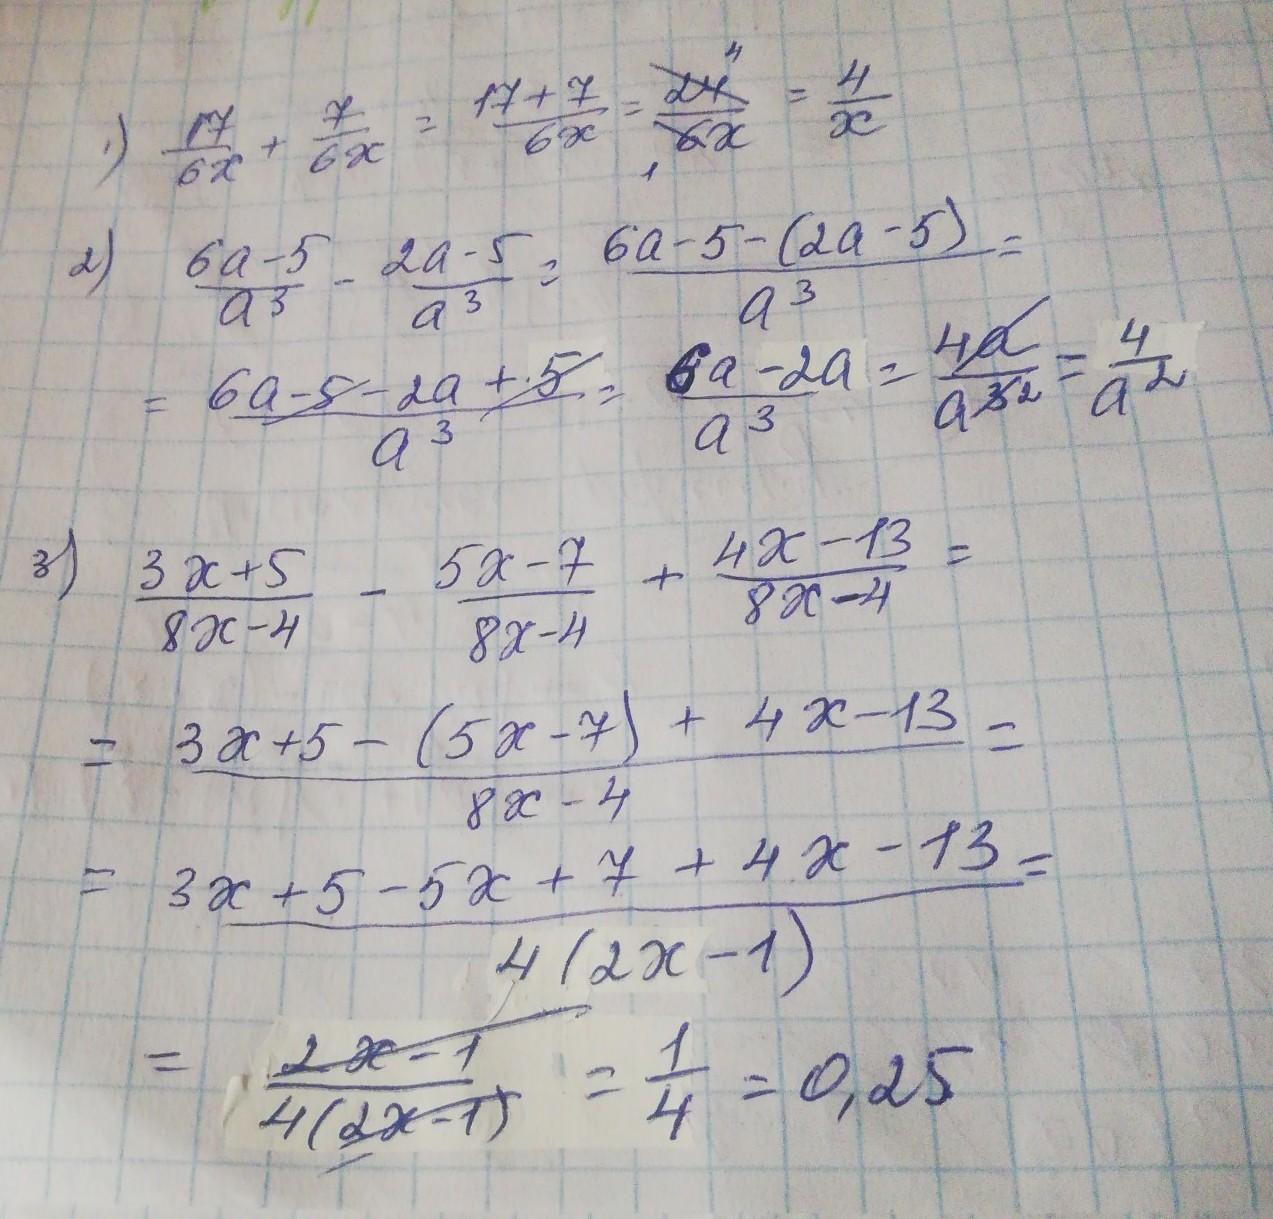 1) 17/6x + 7/6x = 17+7/6x = 24⁴/₁6x = 4/x
2) 6a-5/a³ - 2a-5/a³ = 6a-5-(2a-5)/a³ =
= 6a-5-2a+5/a³ = 6a-2a/a³ = 4a/a³² = 4/a²
3) 3x+5/8x-4 - 5x-7/8x-4 + 4x-13/8x-4 =
= 3x+5-(5x-7)+4x-13/8x-4 =
= 3x+5-5x+7+4x-13/4(2x-1) =
= 2x-1/4(2x-1) = 1/4 = 0,25